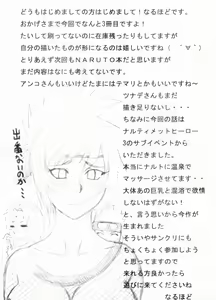 どうもはじめましての方ははじめまして！なるほどです。
おかげさまで今回でなんと3冊目ですよ！
たいして刷ってないのに在庫残ったりもしてますが
自分の描いたものが形になるのは嬉しいですね（ ｀∀´）
とりあえず次回もＮＡＲＵＴＯ本だと思いますが
まだ内容はなにも考えてないです。
アンコさんもいいけどたまにはテマリとかもいいですね～
ツナデさんもまだ
描き足りないし・・・
ちなみに今回の話は
ナルティメットヒーロー
3のサブイベントから
いただきました。
本当にナルトに温泉で
マッサージさせてます・・・
大体あの巨乳と混浴で欲情
しないはずがない！
と、言う思いから今作が
生まれました
そういやサンクリにも
ちょくちょく参加しよう
と思ってますので
来れる方良かったら
遊びに来てくださいね
なるほど
出番ないのか・・・